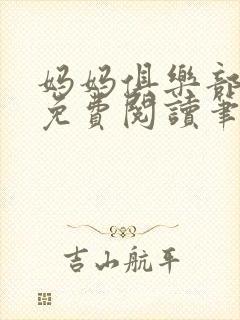 妈妈俱樂部
免費閱讀筆
吉山航平